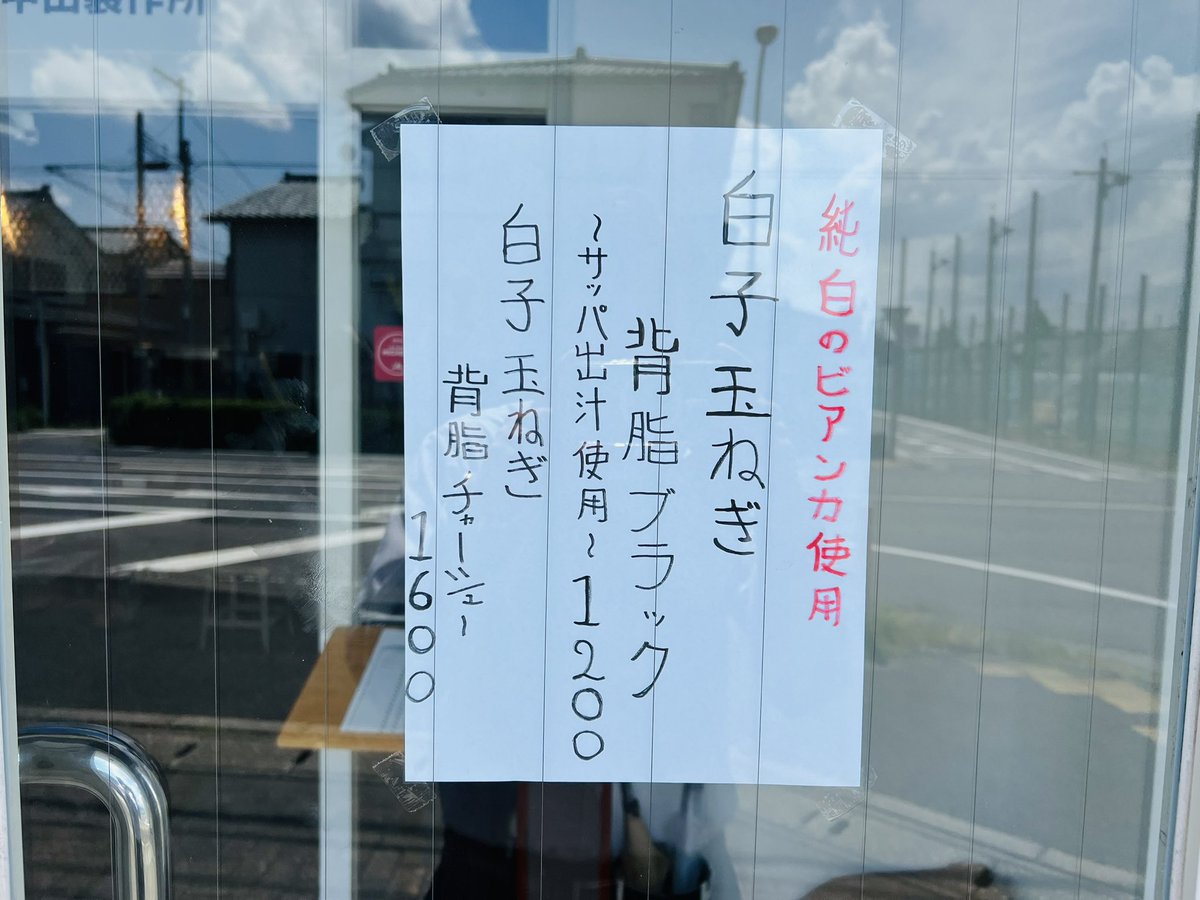 純白のビアンカ使用
白子玉ねぎ
背脂ブラック
～サッパ出汁使用～1200
白子玉ねぎ
背脂チャーシュー
1600